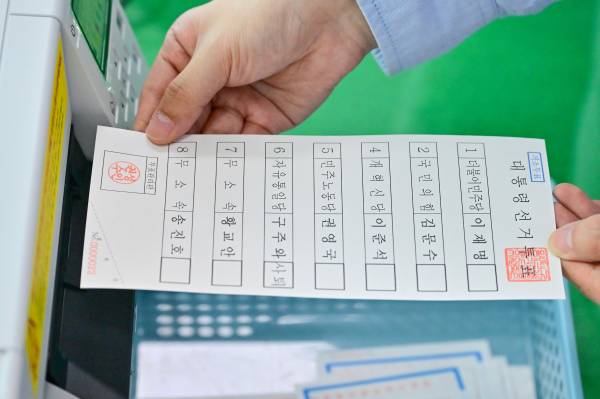 거소투표
대통령선거투표
1 더불어민주당 이재명
2 국민의힘 김문수
4 개혁신당 이준석
5 민주노동당 권영국
6 자유통일당 구주와 사퇴
7 무 소 속 황교안
8 무 소 속 송진호
투표관리관